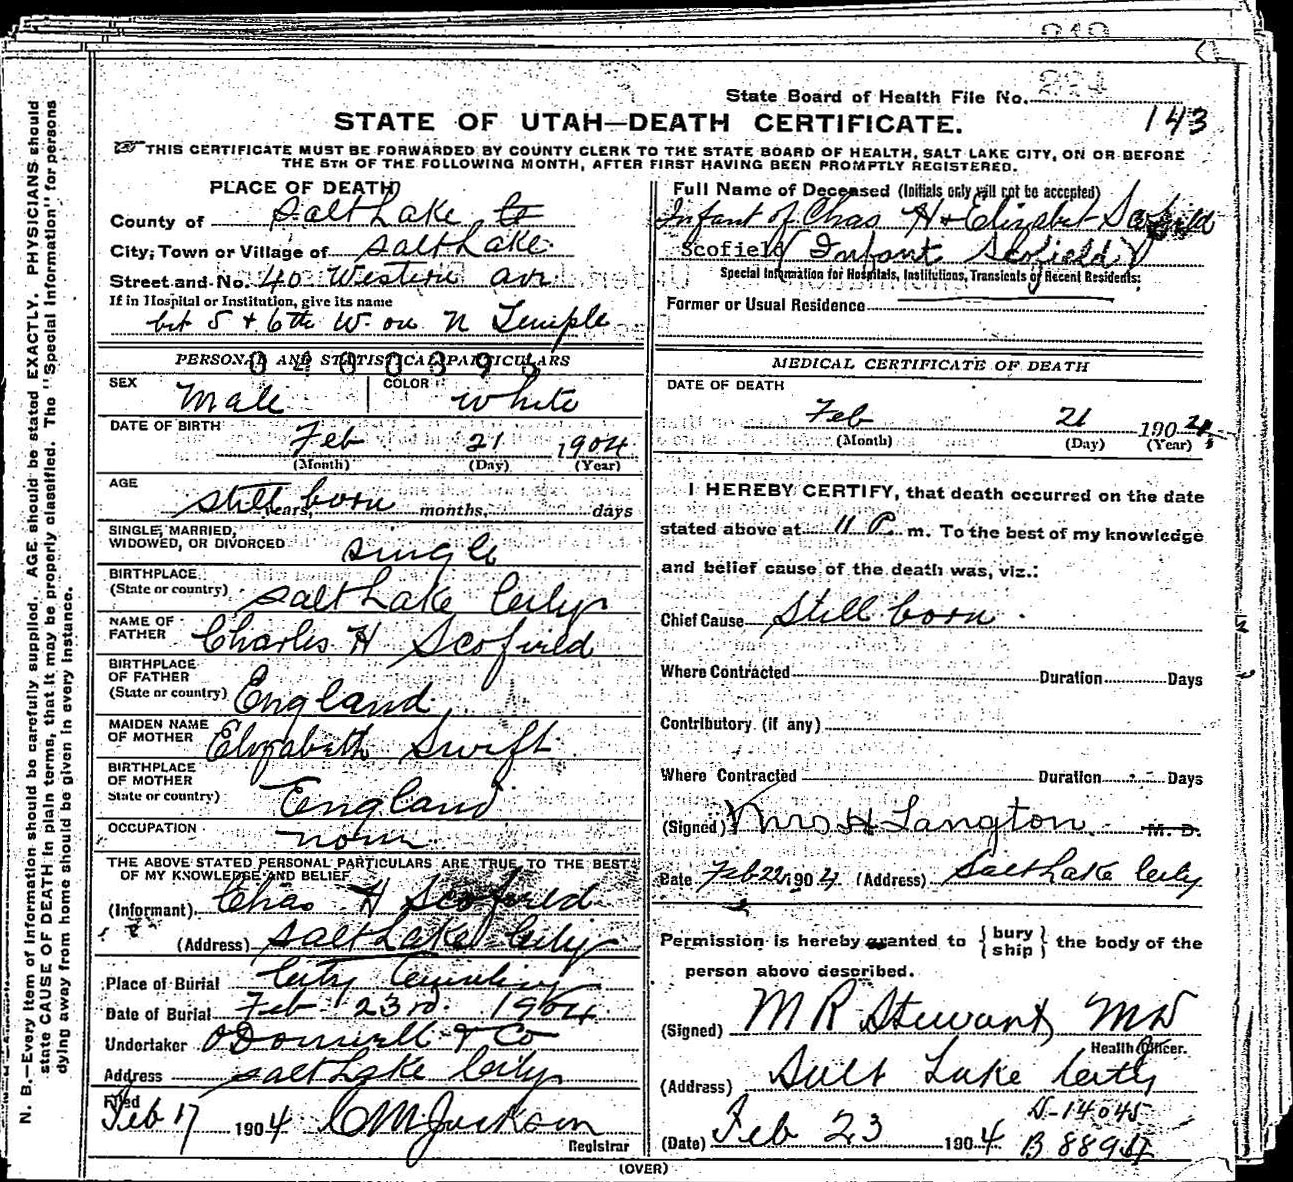 State Board of Health File No. 224
143
STATE OF UTAH—DEATH CERTIFICATE.
THIS CERTIFICATE MUST BE FORWARDED BY COUNTY CLERK TO THE STATE BOARD OF HEALTH, SALT LAKE CITY, ON OR BEFORE
THE 5TH OF THE FOLLOWING MONTH, AFTER FIRST HAVING BEEN PROMPTLY REGISTERED.
PLACE OF DEATH
County of Salt Lake
City, Town or Village of Salt Lake
Street and No. 40 Western ave
If in Hospital or Institution, give its name
bet 5 & 6th W. on N Temple
PERSONAL AND STATISTICAL PARTICULARS
SEX Male COLOR White
DATE OF BIRTH
Feb 21 1904
(Month) (Day) (Year)
AGE
Still born years, months, days
SINGLE, MARRIED,
WIDOWED, OR DIVORCED Single
BIRTHPLACE
(State or country) Salt Lake City
NAME OF
FATHER Charles H Scofield
BIRTHPLACE
OF FATHER
(State or country) England
MAIDEN NAME
OF MOTHER Elizabeth Swift
BIRTHPLACE
OF MOTHER
State or country) England
OCCUPATION none
THE ABOVE STATED PERSONAL PARTICULARS ARE TRUE TO THE BEST
OF MY KNOWLEDGE AND BELIEF
(Informant) Chas H Scofield
(Address) Salt Lake City
Place of Burial City Cemetery
Date of Burial Feb 23rd 1904
Undertaker O'Donnell & Co
Address Salt Lake City
Filed
Feb 17 1904 C M Jackson
Registrar
Full Name of Deceased (Initials only will not be accepted)
Infant of Chas H & Elizabet Scofield
Scofield (Infant Scofield)
Special Information for Hospitals, Institutions, Transients or Recent Residents:
Former or Usual Residence
MEDICAL CERTIFICATE OF DEATH
DATE OF DEATH
Feb 21 1904
(Month) (Day) (Year)
I HEREBY CERTIFY, that death occurred on the date
stated above at 11 P. m. To the best of my knowledge
and belief cause of the death was, viz.:
Chief Cause Still born
Where Contracted Duration Days
Contributory (if any)
Where Contracted Duration Days
(Signed) Mrs H Langton M. D.
Date Feb 22 1904 (Address) Salt Lake City
Permission is hereby granted to { bury ship } the body of the
person above described.
(Signed) M R Stewart MD
Health Officer.
(Address) Salt Lake City
D-14045
(Date) Feb 23 1904 B 8894
(OVER)
N. B.—Every item of information should be carefully supplied. AGE should be stated EXACTLY. PHYSICIANS should
state CAUSE OF DEATH in plain terms, that it may be properly classified. The "Special Information" for persons
dying away from home should be given in every instance.